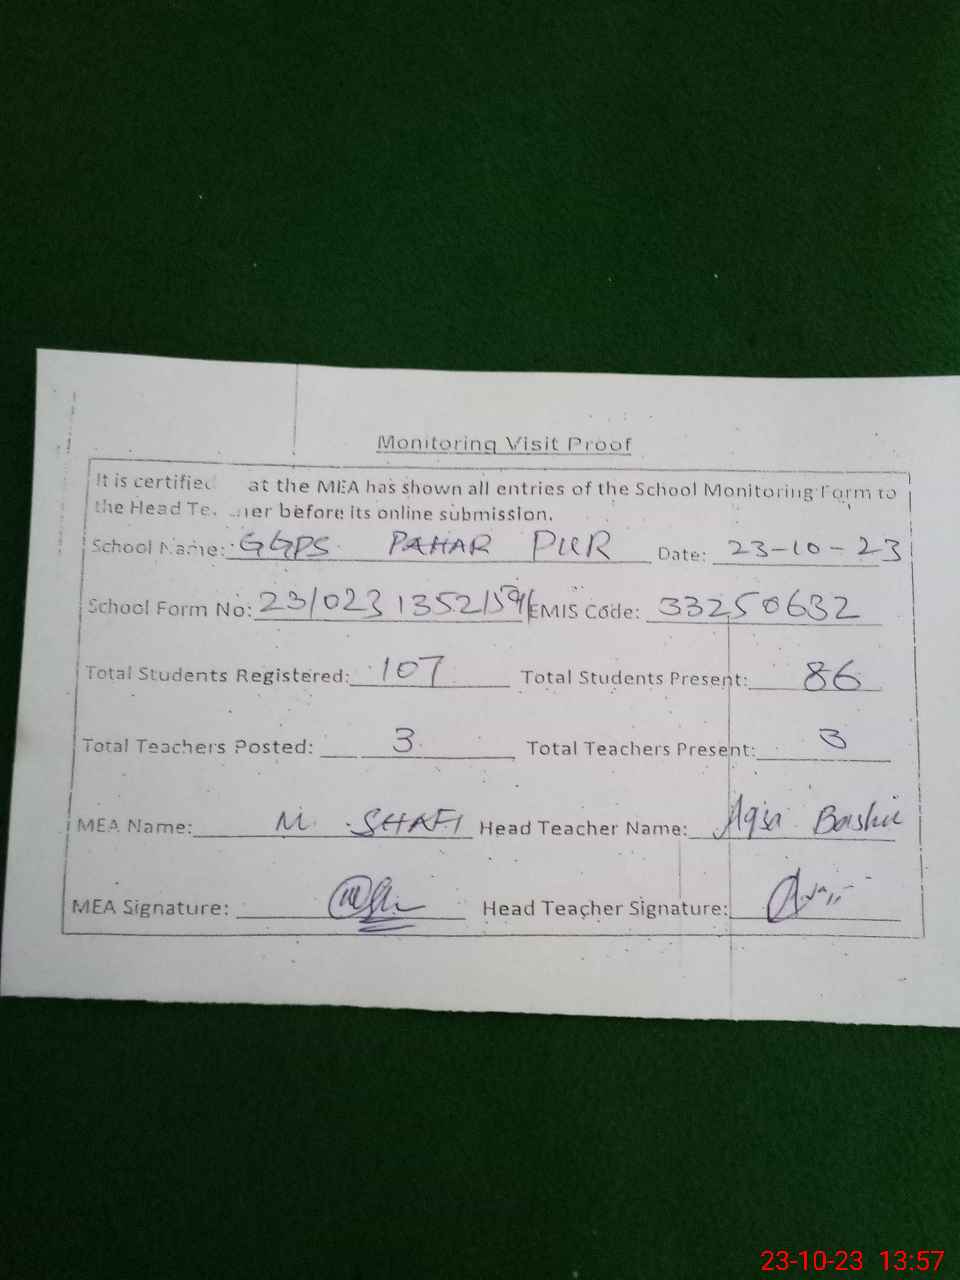 Monitoring Visit Proof
It is certified at the MEA has shown all entries of the School Monitoring Form to
the Head Te. .ner before its online submission.
School Name: GGPS. PAHAR PUR Date: 23-10-23
School Form No: EMIS Code: 33250632
Total Students Registered: 107 Total Students Present: 86
Total Teachers Posted: 3 Total Teachers Present: 3
MEA Name: M. SHAFI Head Teacher Name: Aqsa Bashir
MEA Signature: Head Teacher Signature:
23-10-23 13:57